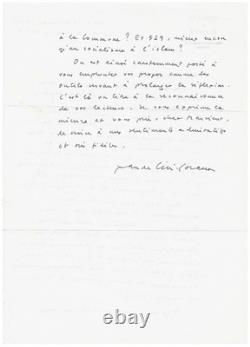 à la Commune ? Et 929, mieux encore
qu'au socialisme à l'islam ?
On est ainsi constamment porté à
vous emprunter vos propos comme des
outils servant à prolonger la réflexion.
C'est là un titre à la reconnaissance
de vos lecteurs. Je vous exprime la
mienne et vous prie, cher Monsieur,
de croire à mes sentiments admiratifs
et très fidèles.